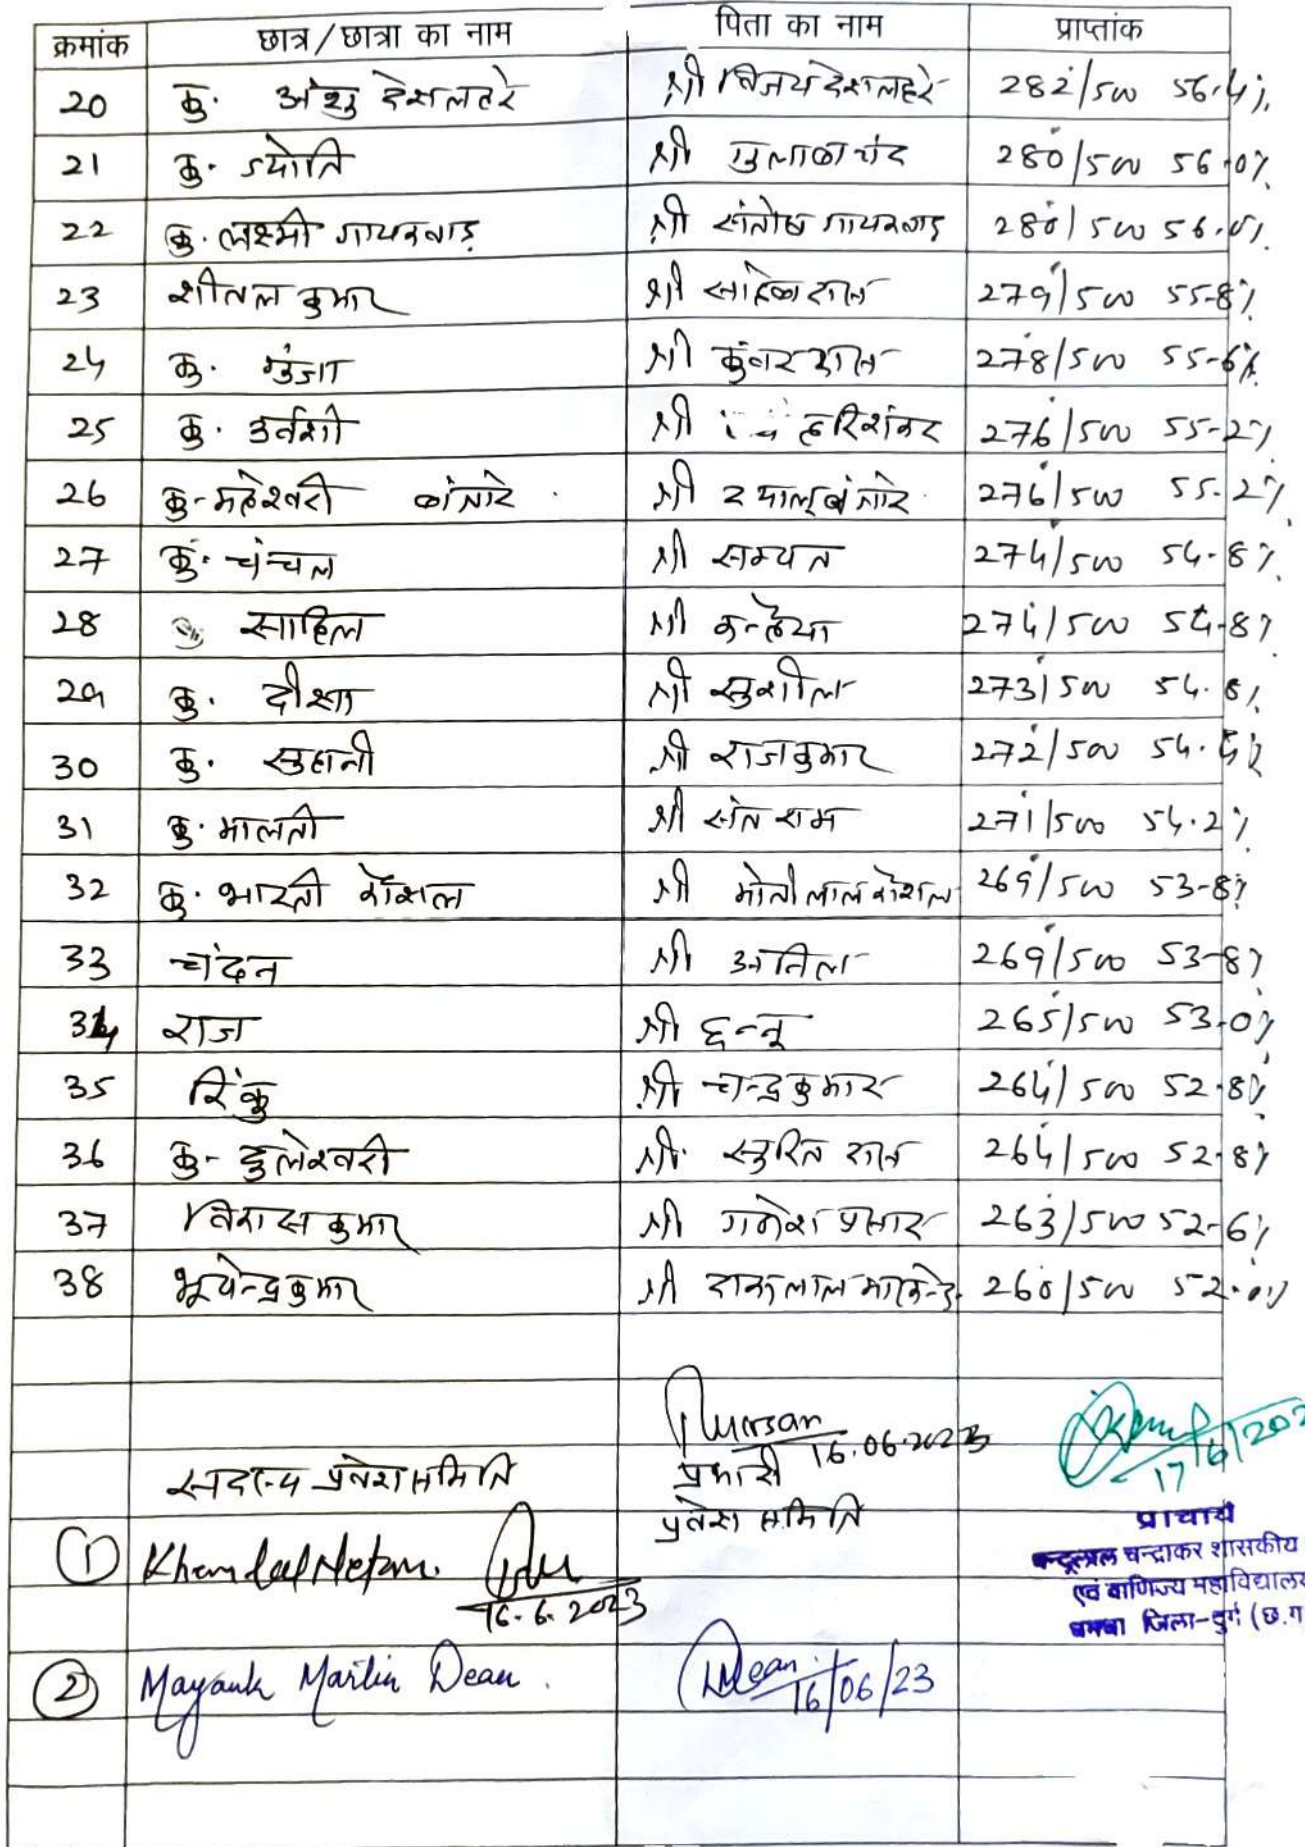 क्रमांक छात्र/छात्रा का नाम पिता का नाम प्राप्तांक
20 कु. अंशु देशलहरे श्री विजय देशलहरे 282/500 56.4%
21 कु. ज्योति श्री गुलाब चंद 280/500 56.0%
22 कु. लक्ष्मी गायकवाड़ श्री संतोष गायकवाड़ 280/500 56.0%
23 शीतल कुमार श्री साहेब दास 279/500 55-8%
24 कु. गुंजा श्री कुंवर दास 278/500 55-6%
25 कु. उर्वशी श्री हरिशंकर 276/500 55-2%
26 कु- महेश्वरी बांजारे श्री दयालु बंजारे 276/500 55-2%
27 कु. चंचल श्री सम्पत 274/500 54-8%
28 साहिल श्री कन्हैया 274/500 54-8%
29 कु. दीक्षा श्री सुशील 273/500 54.6%
30 कु. सुहानी श्री राजकुमार 272/500 54.4%
31 कु. मालती श्री संत राम 271/500 54.2%
32 कु. भारती कौशल श्री मोतीलाल कौशल 269/500 53-8%
33 चंदन श्री अनिल 269/500 53-8%
34 राज श्री छन्नू 265/500 53.0%
35 रिंकु श्री चन्द्रकुमार 264/500 52.8%
36 कु- दुलेश्वरी श्री सुरित दास 264/500 52.8%
37 विकास कुमार श्री गणेश प्रसाद 263/500 52-6%
38 भूपेन्द्र कुमार श्री 260/500 52.0%
16.06.2023
17/6/202
सदस्य प्रवेश समिति प्रभारी
प्रवेश समिति
प्राचार्य
चन्दूलाल चन्द्राकर शासकीय
एवं वाणिज्य महाविद्यालय
धमधा जिला-दुर्ग (छ.ग
① Khemlal Netam.
16.6.2023
② Mayank Martin Dean. MDean 16/06/23